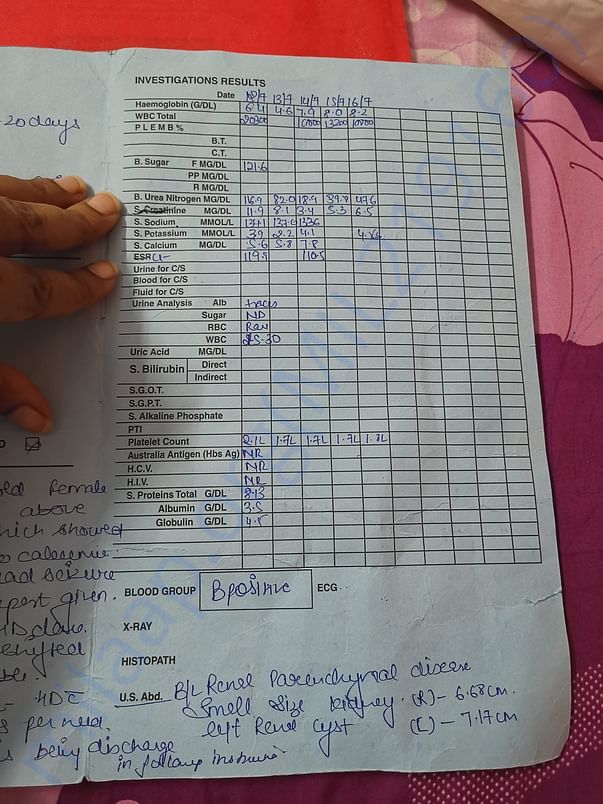 INVESTIGATIONS RESULTS
Date 13/7 14/7 15/7 16/7
Haemoglobin (G/DL) 6.4 4.6 7.9 8.0 8.2
WBC Total 20300 13200
P L E M B %
B.T.
C.T.
B. Sugar F MG/DL 121.6
PP MG/DL
R MG/DL
B. Urea Nitrogen MG/DL 116.9 82.0 18.9 39.8 47.6
S. Creatinine MG/DL 11.9 8.1 3.4 5.3 6.5
S. Sodium MMOL/L
S. Potassium MMOL/L 3.2 2.2 4.1
S. Calcium MG/DL 5.6 5.8 7.8
ESR Cl- 119.5 110.5
Urine for C/S
Blood for C/S
Fluid for C/S
Urine Analysis Alb traces
Sugar ND
RBC
WBC 25-30
Uric Acid MG/DL
S. Bilirubin Direct
Indirect
S.G.O.T.
S.G.P.T.
S. Alkaline Phosphate
PTI
Platelet Count 2.1L 1.7L 1.7L 1.7L
Australia Antigen (Hbs Ag) NR
H.C.V. NR
H.I.V. NR
S. Proteins Total G/DL 8.13
Albumin G/DL 3.5
Globulin G/DL
BLOOD GROUP B positive ECG
X-RAY
HISTOPATH
U.S. Abd. B/L Renal Parenchymal disease
Small Size kidney. (R) - 6.68 cm.
left Renal cyst (L) - 7.17 cm
-20 days
old female
above
which showed
had seizure
given.
HDC
s per need.
is being discharge
in following